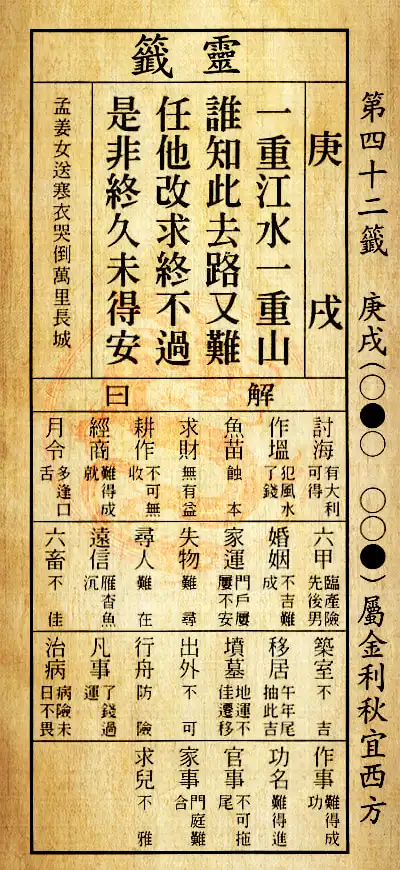 第四十二籤 庚戌(○●○ ○○●)屬金利秋宜西方
靈籤
庚戌
一重江水一重山
誰知此去路又難
任他改求終不過
是非終久未得安
孟姜女送寒衣哭倒萬里長城
解曰
討海 有大利可得
作塭 犯風水了錢
魚苗 蝕本
求財 無有益
耕作 不可無收
經商 難得成就
月令 多逢口舌
六甲 臨產險先後男
婚姻 不吉難成
家運 門戶屢屢不安
失物 難尋
尋人 難在
遠信 雁杳魚沉
六畜 不佳
築室 不吉
移居 午年尾抽此吉
墳墓 地運不佳遷移
出外 不可
行舟 防險
凡事 了錢過運
治病 病險未日不畏
作事 難得成功
功名 難得進
官事 不可拖尾
家事 門庭難含
求兒 不雅